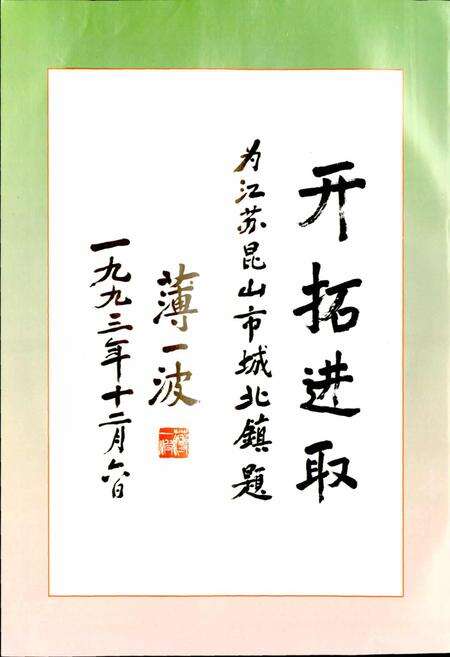 开拓进取
为江苏昆山市城北鎮题
薄一波
一九九三年十二月六日